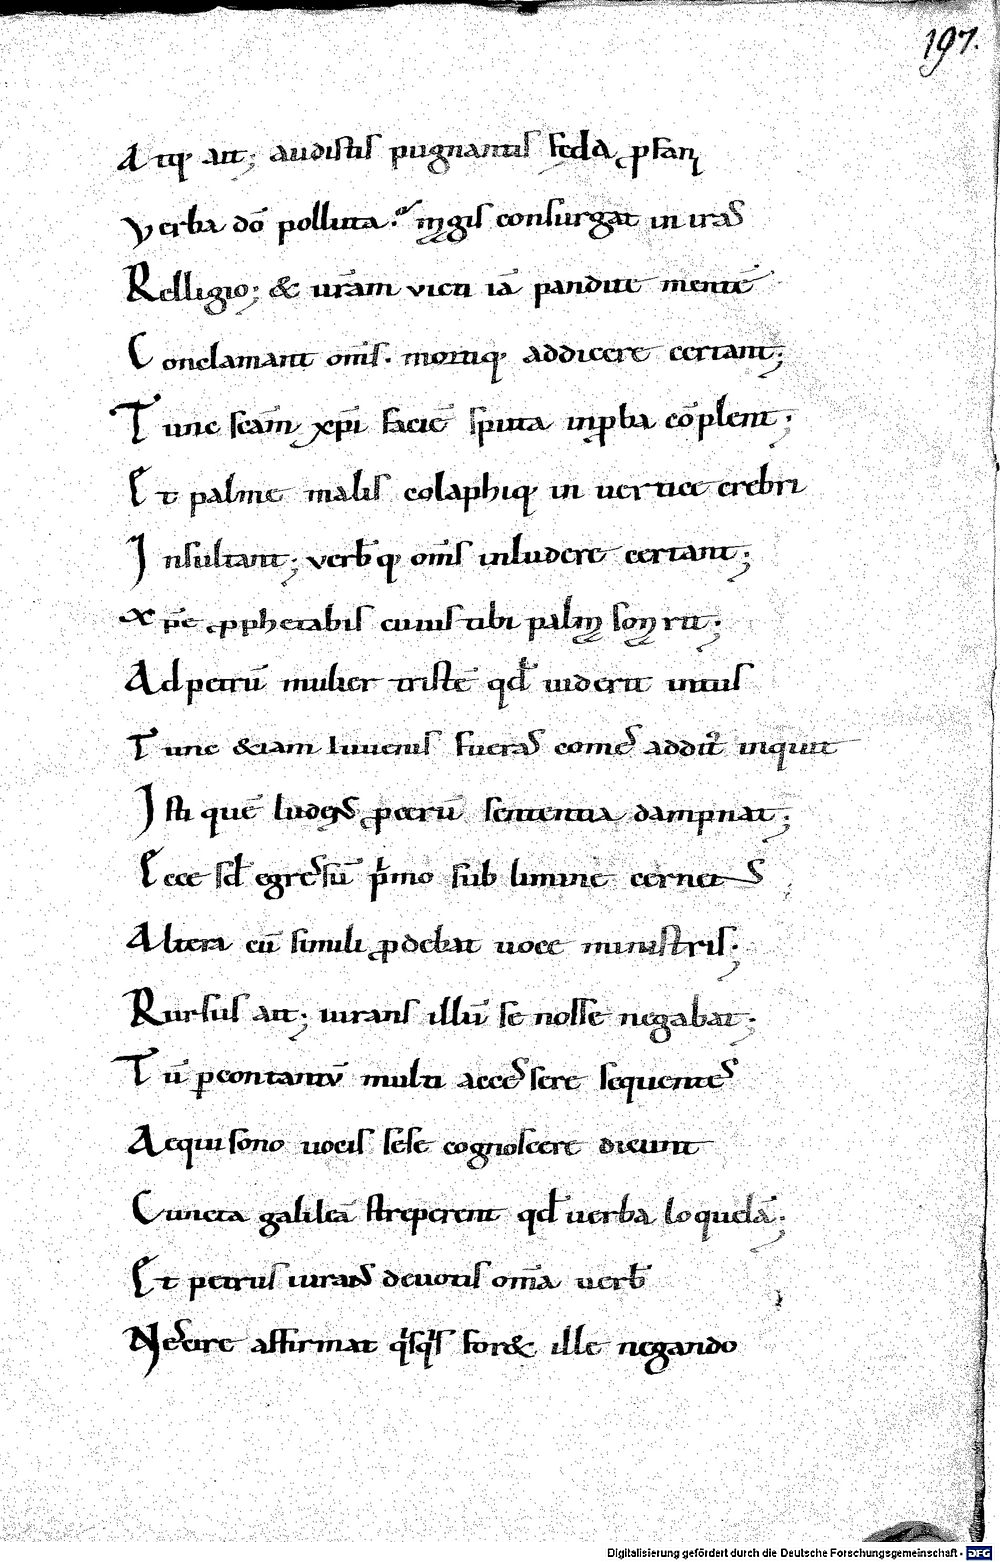 197.
Atq; ait; audistis pugnantis feda ꝓfant
Verba dō polluta. magis consurgat in iras
Relligio; & urām vicu iā pandite mentē
Conclamant om̄s. mortiq; addicere certant;
Tunc scām xp̄i faciē sputa inꝓba cōplent;
Et palme malis colaphiq; in uertice crebri
Insultant; verbꝰq; om̄s inludere certant;
Xp̄e ꝓphetabis cuius tibi palma sonarit;
Ad petrū mulier tristē qđ uiderit intus
Tunc &iam iuuenis fueras comes addit inquit
Isti quē iudęȩ petrū sententia dampnat;
Ecce sđ egressū p̄mo sub limine cernens
Altera cū simili ꝓdebat uoce ministris;
Rursus ait; iurans illū se nosse negabat;
Tū ꝑcontantū multi accessere sequentes
Acqui sono uocis sese cognoscere dicunt
Cuncta galileā streperent qđ uerba loquelā;
Et petrus iurans deuotis om̄a uerb
Nescire affirmat qͥsqͥs for& ille negando
Digitalisierung gefördert durch die Deutsche Forschungsgemeinschaft - DFG